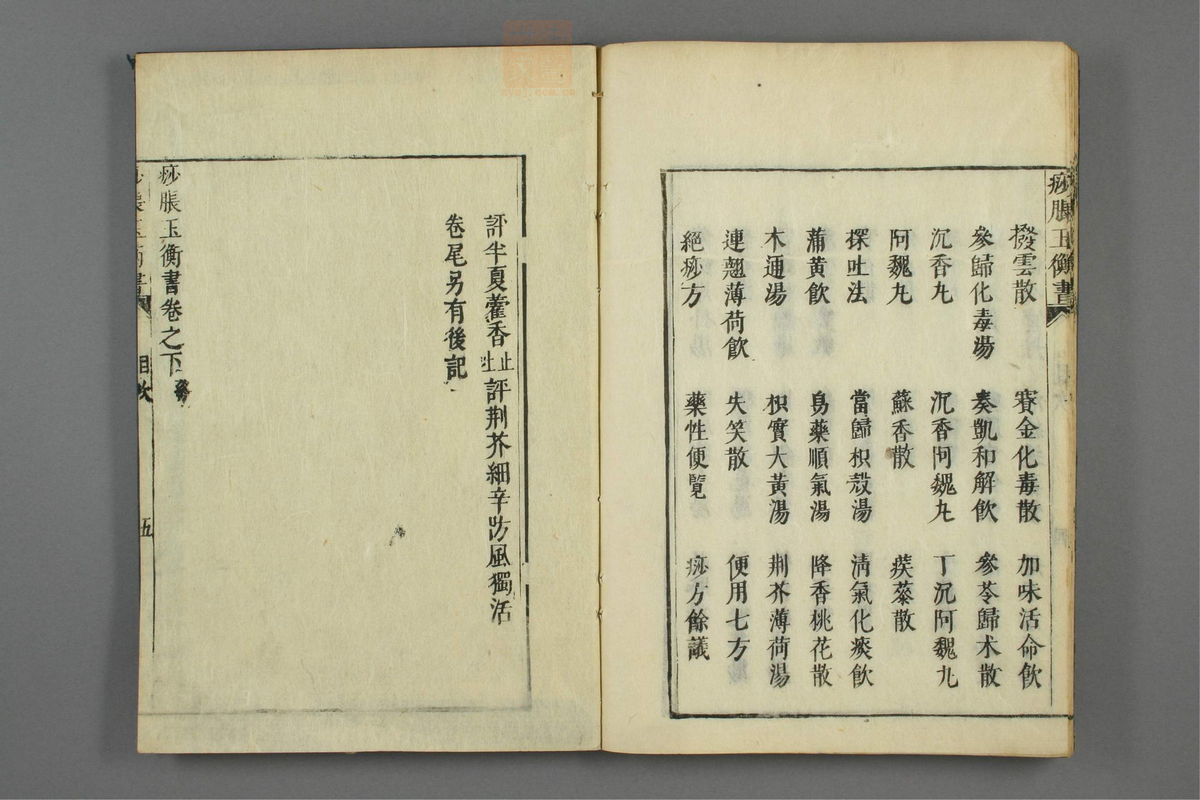 痧脹玉衡書
撥雲散 賽金化毒散 加味活命飲
參歸化毒湯 奏凱和解飲 參苓歸术散
沉香丸 沉香阿魏丸 丁沉阿魏丸
阿魏丸 蘇香散 蒺藜散
探吐法 當歸枳殼湯 清氣化痰飲
蒲黃飲 烏藥順氣湯 降香桃花散
木通湯 枳實大黃湯 荆芥薄荷湯
連翹薄荷飲 失笑散 便用七方
絕痧方 藥性便覽 痧方餘議
評半夏藿香止吐 評荆芥細辛防風獨活
卷尾另有後記
痧脹玉衡書卷之下終
痧脹玉衡書 目次 五